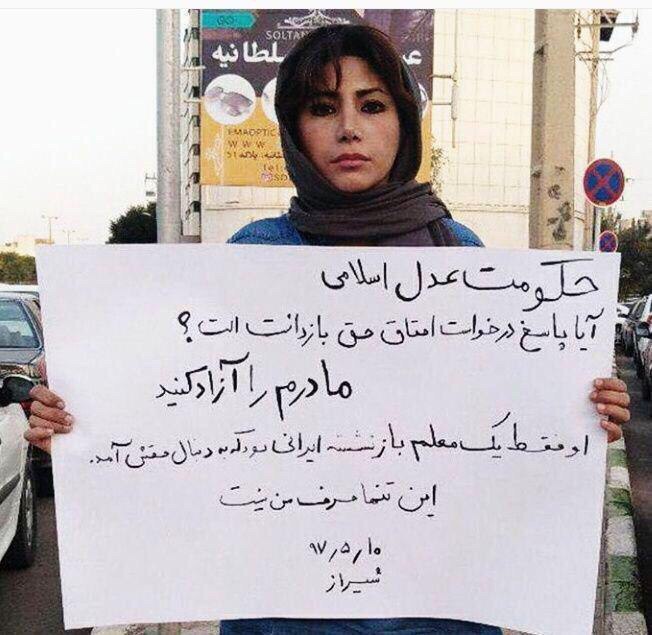 GO
SOLTAN
سلطانیه
EMAOPTIC
WWW
پلاک ۵۱
حکومت عدل اسلامی
آیا پاسخ درخواست احقاق حق بازداشت است؟
مادرم را آزاد کنید
او فقط یک معلم بازنشسته ایرانی بود که به دنبال حقش آمد.
این تنها حرف من نیست
۹۷/۵/۱۰
شیراز